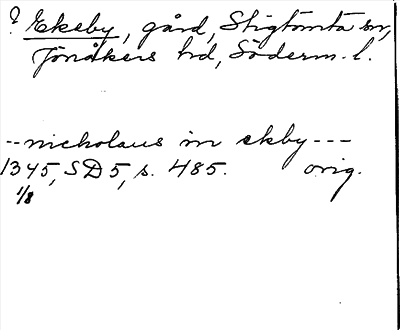 ? Ekeby, gård, Stigtomta sn,
Jönåkers hd, Söderm. l.
-- nicholaus in ekby ---
1345, SD 5, s. 485. orig.
1/8